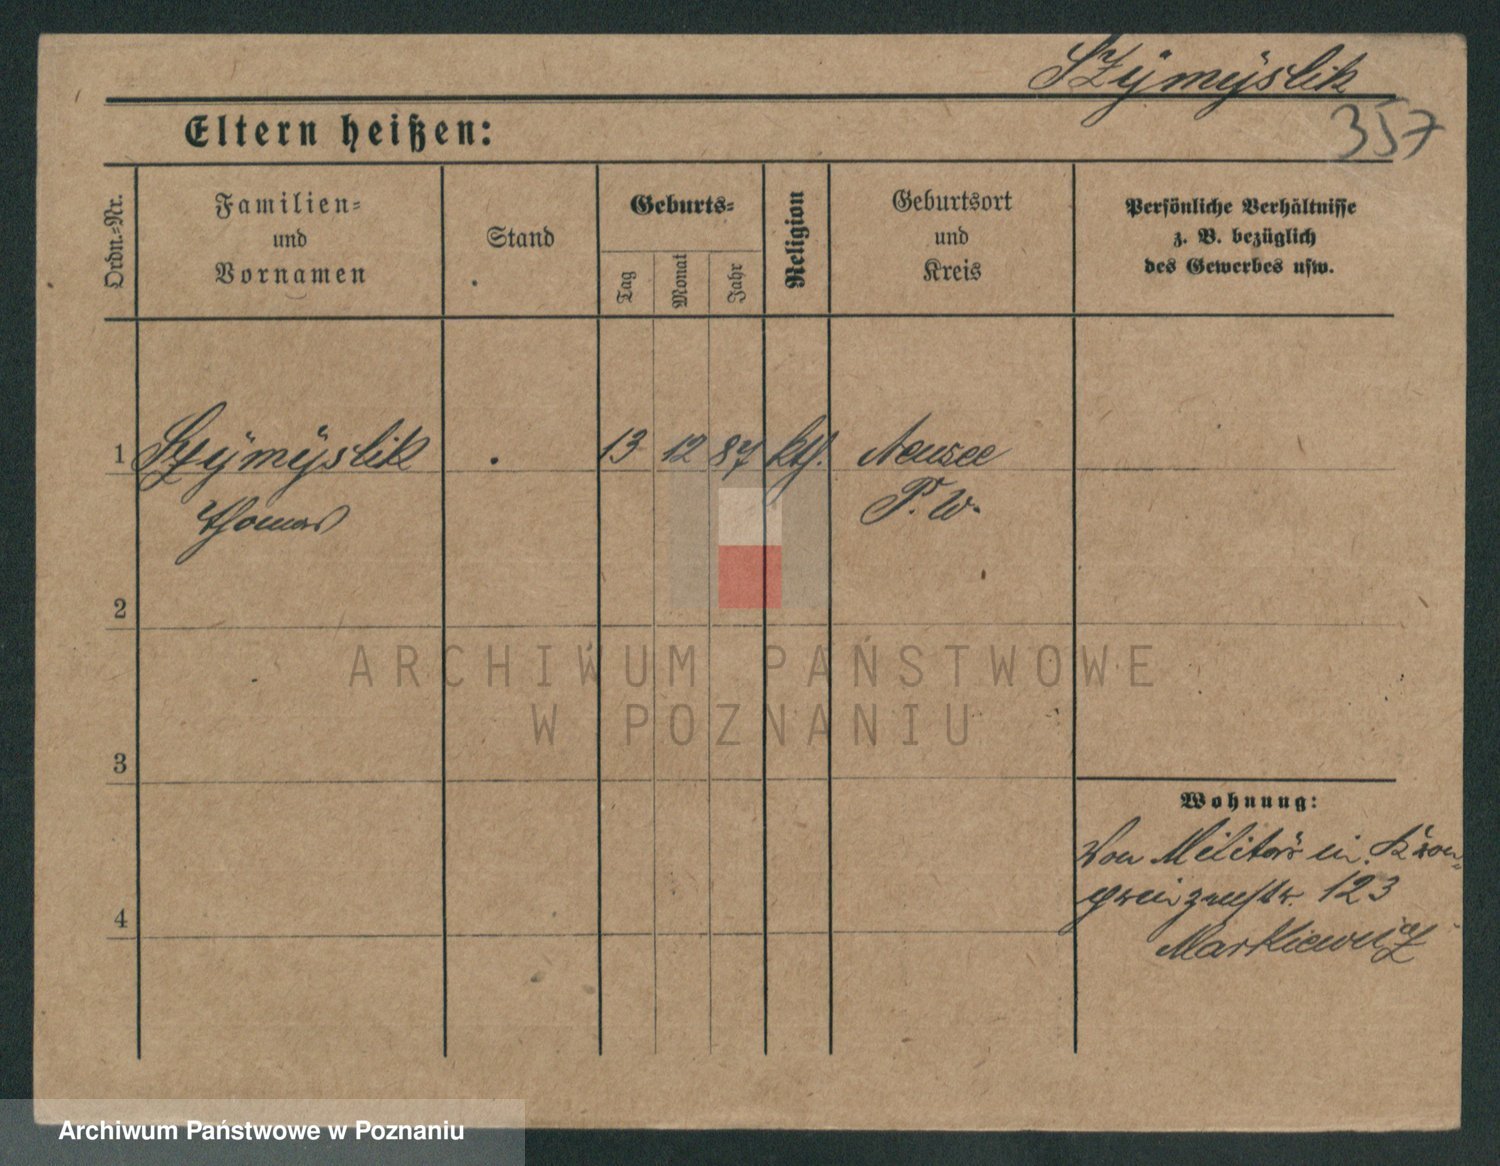 Szÿmÿslik
357
Eltern heißen:
Ordn.-Nr.
Familien-
und
Vornamen
Stand
Geburts-
Tag
Monat
Jahr
Religion
Geburtsort
und
Kreis
Persönliche Verhältnisse
z. B. bezüglich
des Gewerbes usw.
1 Szÿmÿslik . 13 12 87 kth. Neusee
Thomas P. W.
2
ARCHIWUM PAŃSTWOWE
W POZNANIU
3
Wohnung:
Von Militär in Kron-
prinzenstr. 123
4
Markiewicz
Archiwum Państwowe w Poznaniu